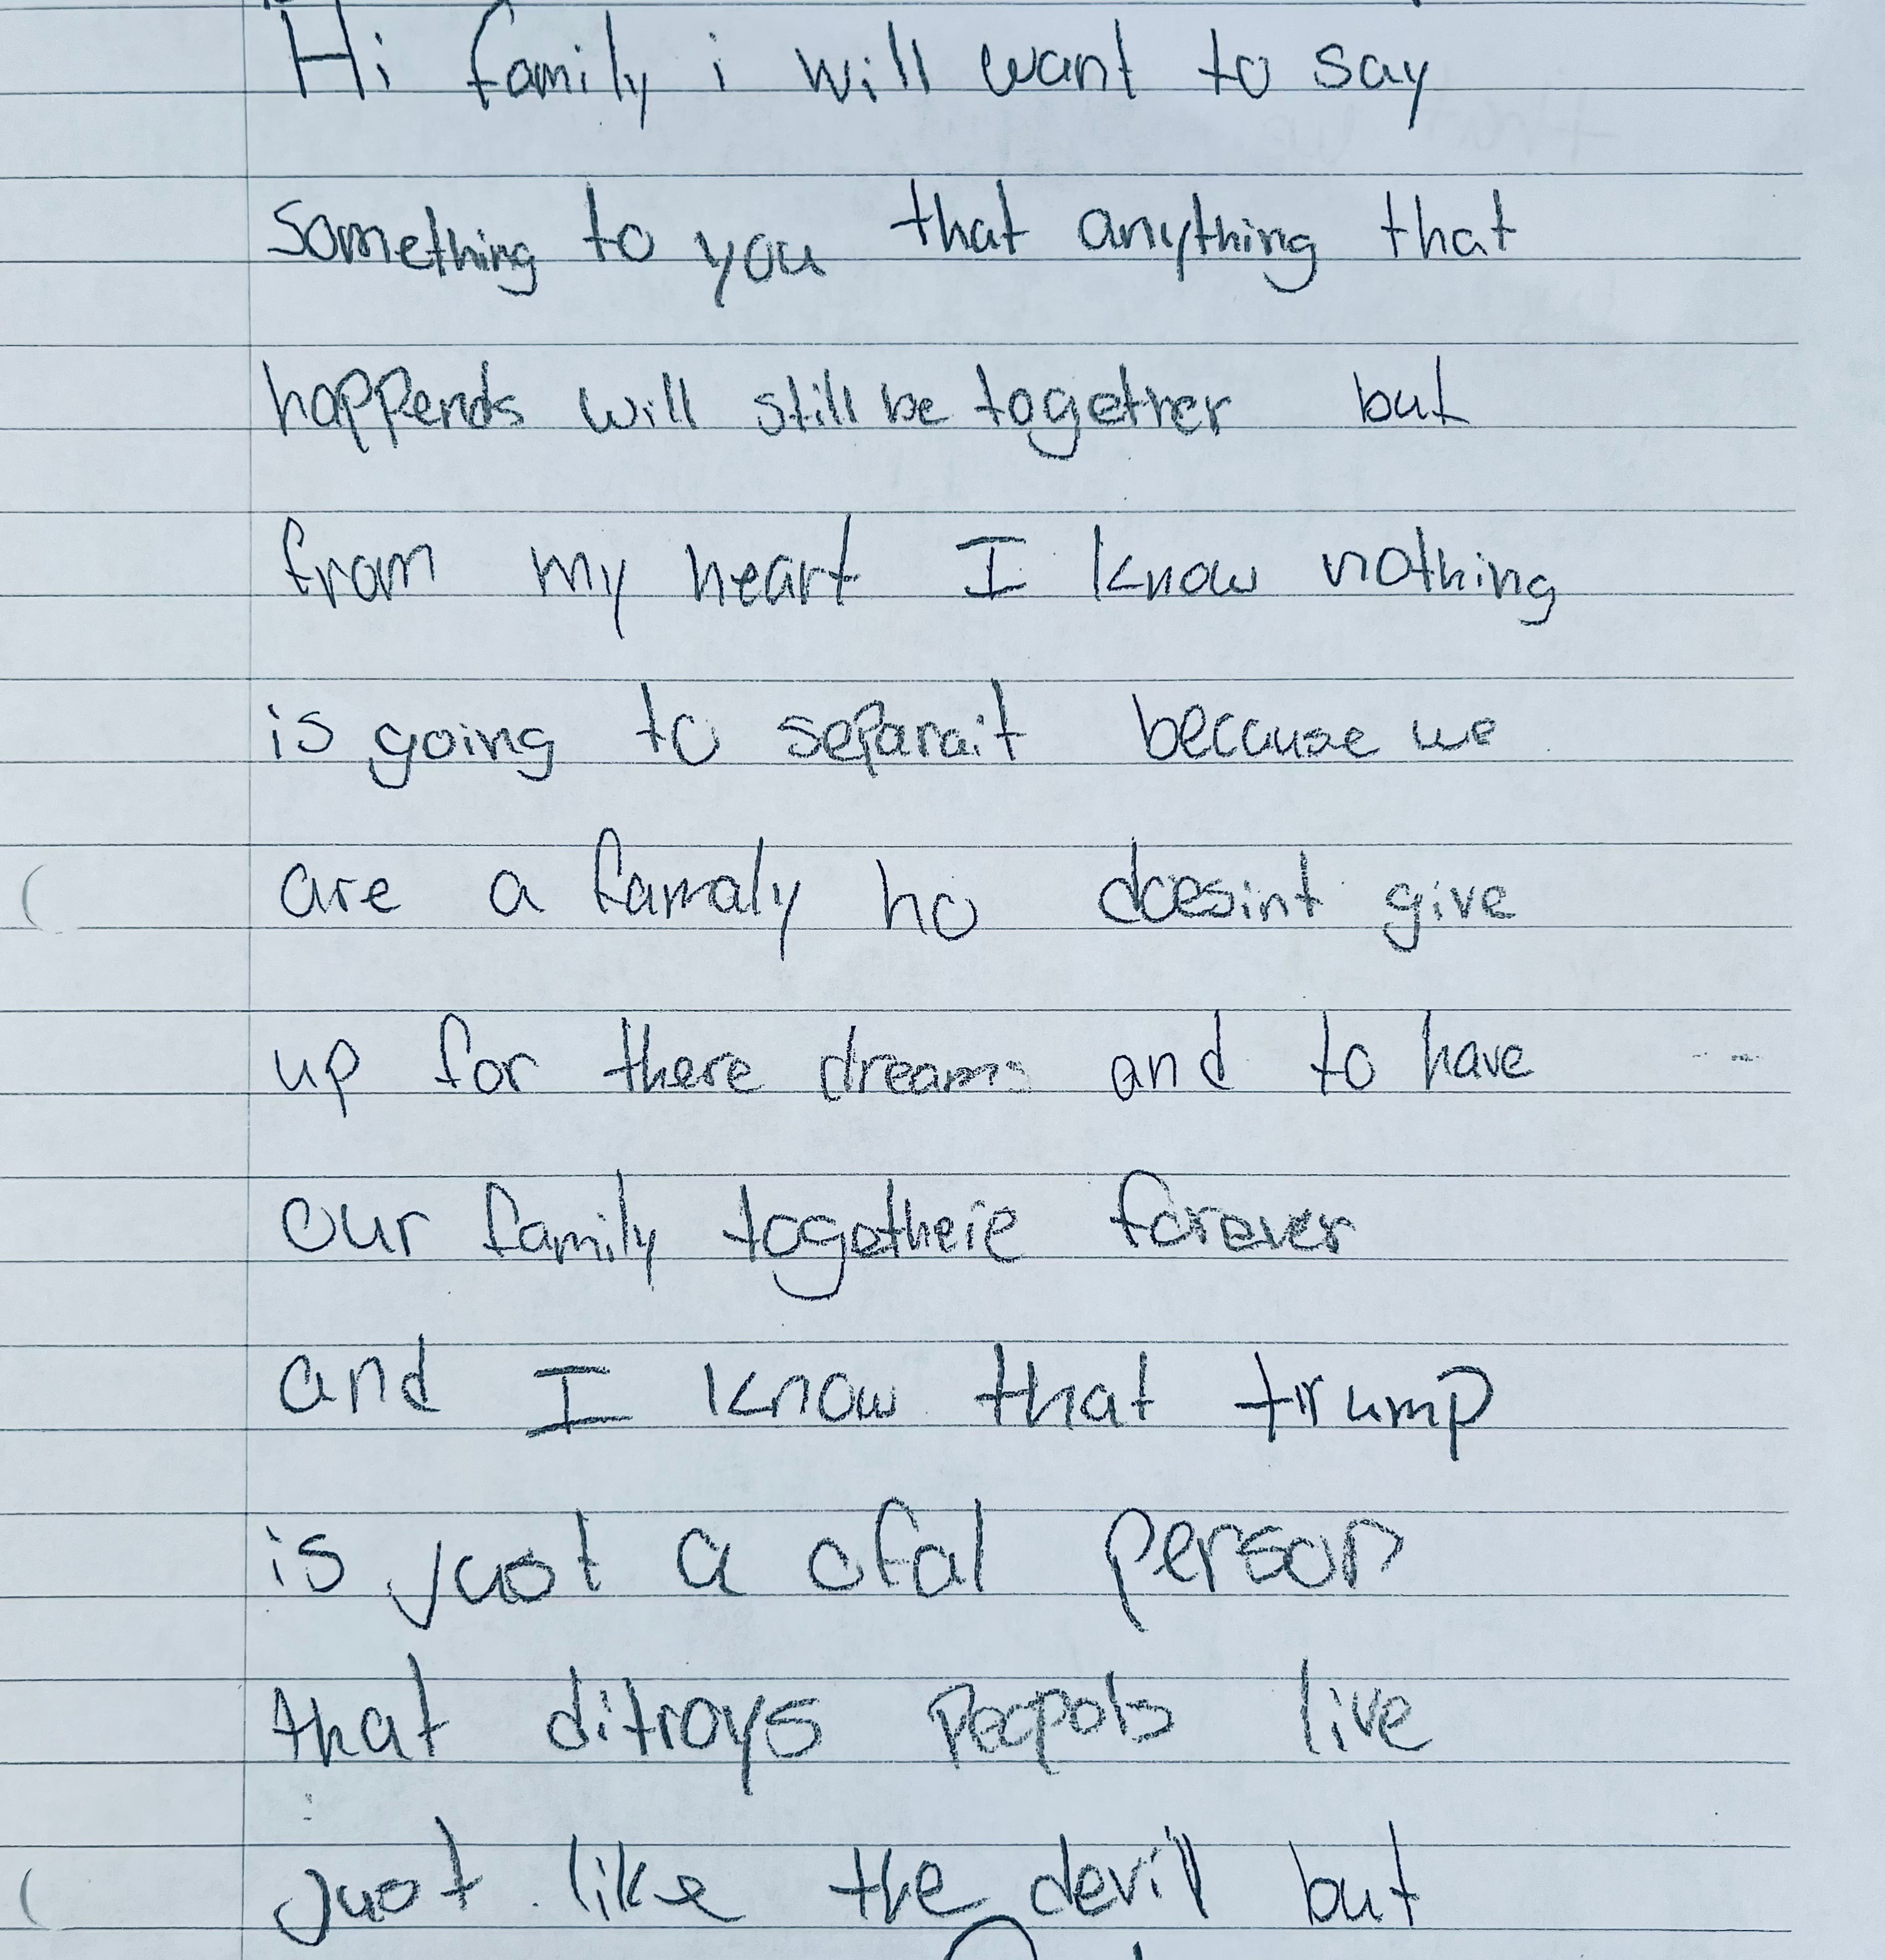 Hi family i will want to say
something to you that anything that
happends will still be together but
from my heart I know nothing
is going to separait because we
are a famaly ho doesint give
up for there dreams and to have
our family togetheie forever
and I know that trump
is just a ofal person
that ditroys Peopols live
just like the devil but